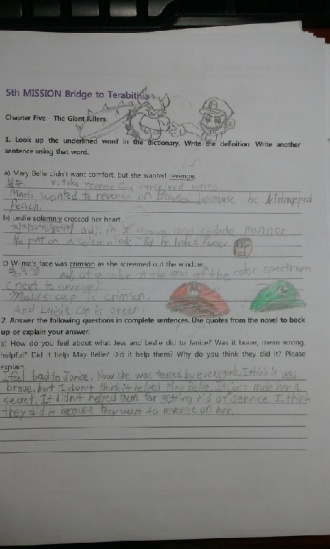 5th MISSION Bridge to Terabithia
Chapter Five - The Giant Killers
1. Look up the underlined word in the dictionary. Write the definition. Write another
sentence using that word.
a) Mary Belle didn't want comfort, but she wanted revenge.
복수 v. take revenge for perceived wrong
Mario wanted to revenge on because he kidnapped
Peach.
b) Leslie solemnly crossed her heart.
adj. in a grave and sedate manner
He put on a solemn look
c) Wilma's face was crimson as she screamed out the window.
adj. of a color at the end of the color spectrum
(next to orange)
Mario's cap is crimson.
And Luigi's cap is green.
2. Answer the following questions in complete sentences. Use quotes from the novel to back
up or explain your answer.
a) How do you feel about what Jess and Leslie did to Janice? Was it brave, mean, wrong,
helpful? Did it help May Belle? Did it help them? Why do you think they did it? Please
explain.
I feel bad to Janice. Now she was teased by everyone. I think it was
brave, but I don't think it helped May Belle. It just made her a
secret. It didn't helped them for getting rid of Jannice. I think
they did it because they want to reverse on her.